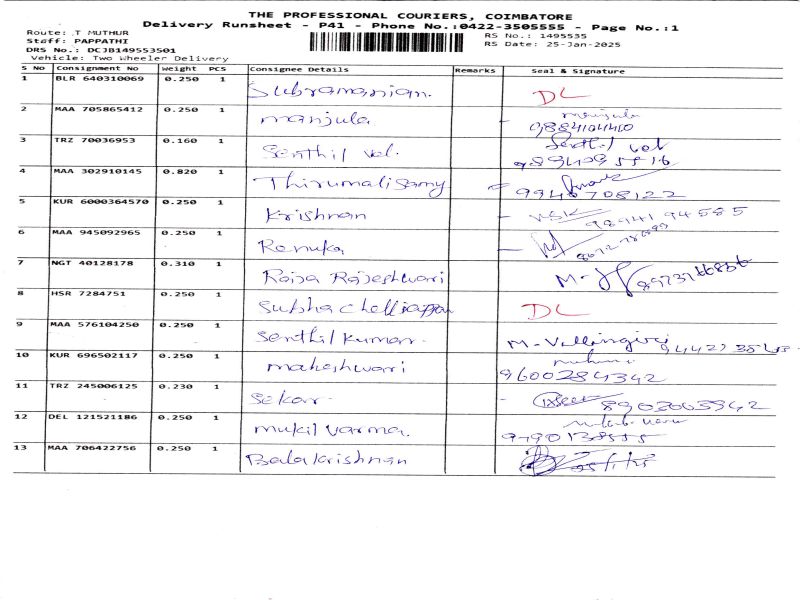 THE PROFESSIONAL COURIERS, COIMBATORE
Delivery Runsheet - P41 - Phone No.:0422-3505555 - Page No.:1
Route: T MUTHUR
Staff: PAPPATHI
DRS No.: DCJB149553501
Vehicle: Two Wheeler Delivery
RS No.: 1495535
RS Date: 25-Jan-2025
S No Consignment No Weight PCS Consignee Details Remarks Seal & Signature
1 BLR 640310069 0.250 1 Subramanian. DL
2 MAA 705865412 0.250 1 manjula - manjula
9884104410
3 TRZ 70036953 0.160 1 Senthil vel. Senthil vel
4 MAA 302910145 0.820 1 Thirumalisamy
9946708122
5 KUR 6000364570 0.250 1 Krishnan - 98941 94585
6 MAA 945092965 0.250 1 Renuka -
7 NGT 40128178 0.310 1 Raja Rajeshwari
8 HSR 7284751 0.250 1 Subha chelliappan DL
9 MAA 576104250 0.250 1 Senthil kumar. M. Vellingiri
10 KUR 696502117 0.250 1 maheshwari
9600284342
11 TRZ 245006125 0.230 1 Sekar - 8903063942
12 DEL 121521186 0.250 1 mukil varma.
13 MAA 706422756 0.250 1 Balakrishnan 25/1/25